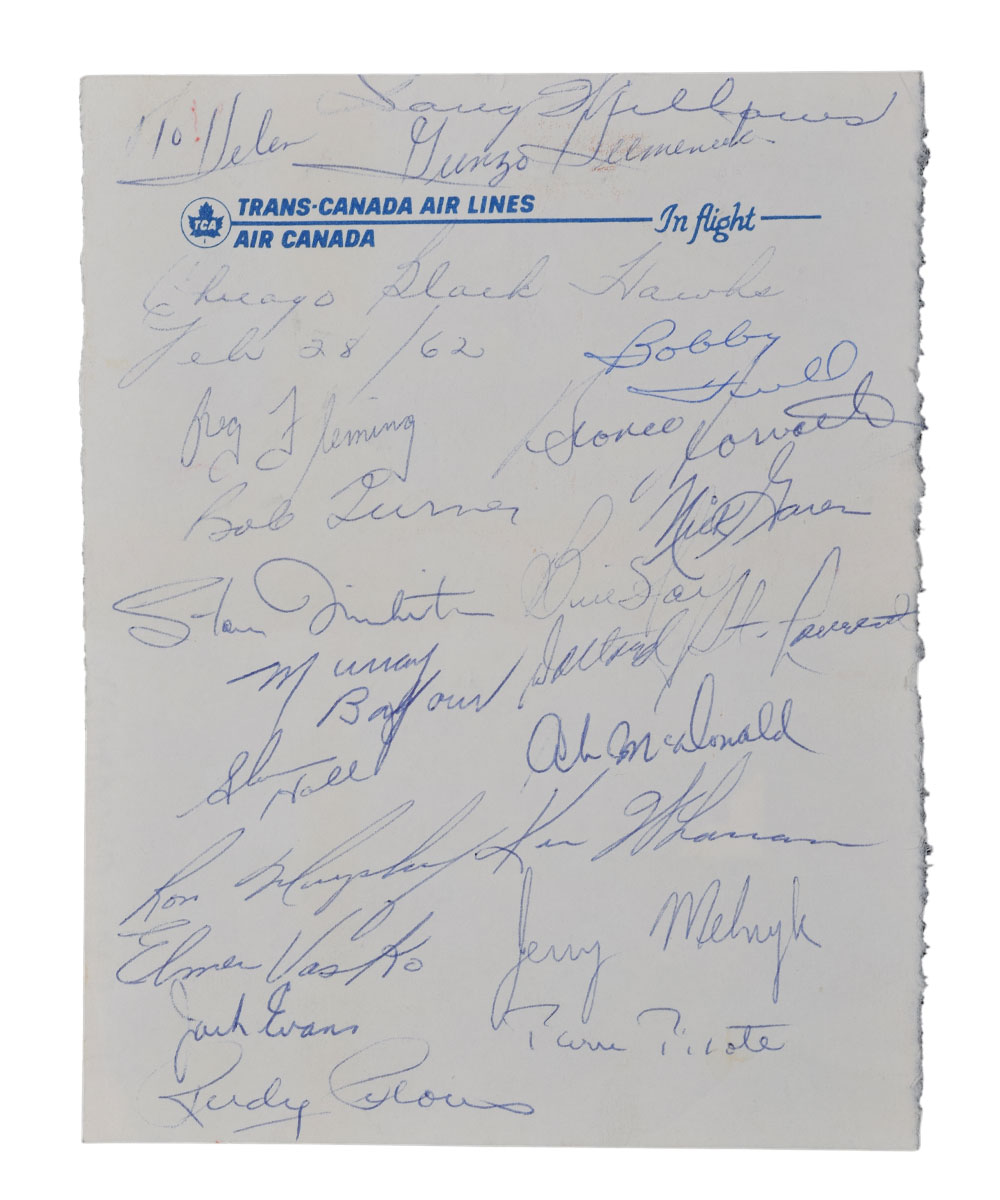 To Helen
Gunzo Humeniuk
TRANS-CANADA AIR LINES
TCA
AIR CANADA
In flight
Chicago Black Hawks
Feb 28/62
Bobby
Hull
Reg Fleming
Bronco Horvath
Bob Turner
"Nick" Garen
Stan Mikita
Bill Hay
Dollard St. Laurent
Murray
Balfour
Ab McDonald
Glenn
Hall
Ron Murphy
Ken Wharram
Elmer Vasko
Jerry Melnyk
Jack Evans
Pierre Pilote
Rudy Pilous